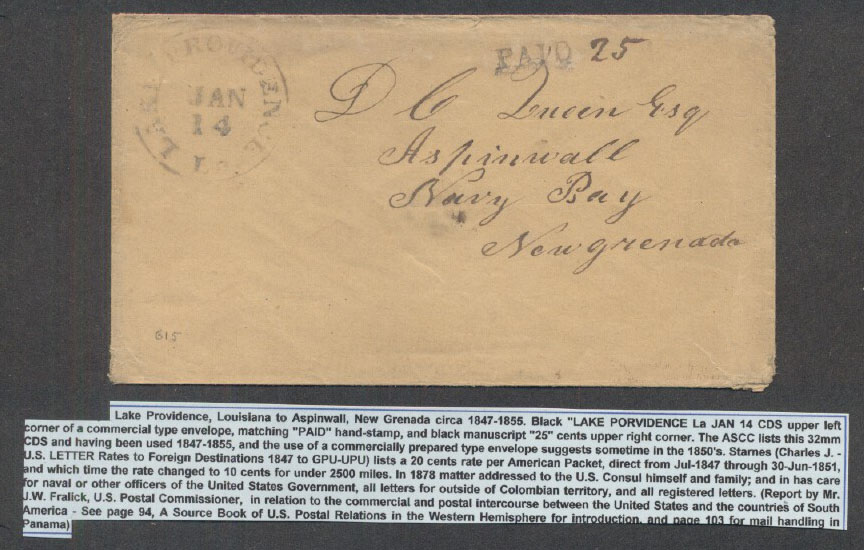 LAKE PROVIDENCE
JAN
14
La
PAID 25
D C Queen Esq
Aspinwall
Navy Bay
New grenada
615
Lake Providence, Louisiana to Aspinwall, New Grenada circa 1847-1855. Black "LAKE PORVIDENCE La JAN 14 CDS upper left
corner of a commercial type envelope, matching "PAID" hand-stamp, and black manuscript "25" cents upper right corner. The ASCC lists this 32mm
CDS and having been used 1847-1855, and the use of a commercially prepared type envelope suggests sometime in the 1850's. Starnes (Charles J. -
U.S. LETTER Rates to Foreign Destinations 1847 to GPU-UPU) lists a 20 cents rate per American Packet, direct from Jul-1847 through 30-Jun-1851,
and which time the rate changed to 10 cents for under 2500 miles. In 1878 matter addressed to the U.S. Consul himself and family; and in has care
for naval or other officers of the United States Government, all letters for outside of Colombian territory, and all registered letters. (Report by Mr.
J.W. Fralick, U.S. Postal Commissioner, in relation to the commercial and postal intercourse between the United States and the countries of South
America - See page 94, A Source Book of U.S. Postal Relations in the Western Hemisphere for introduction, and page 103 for mail handling in
Panama)